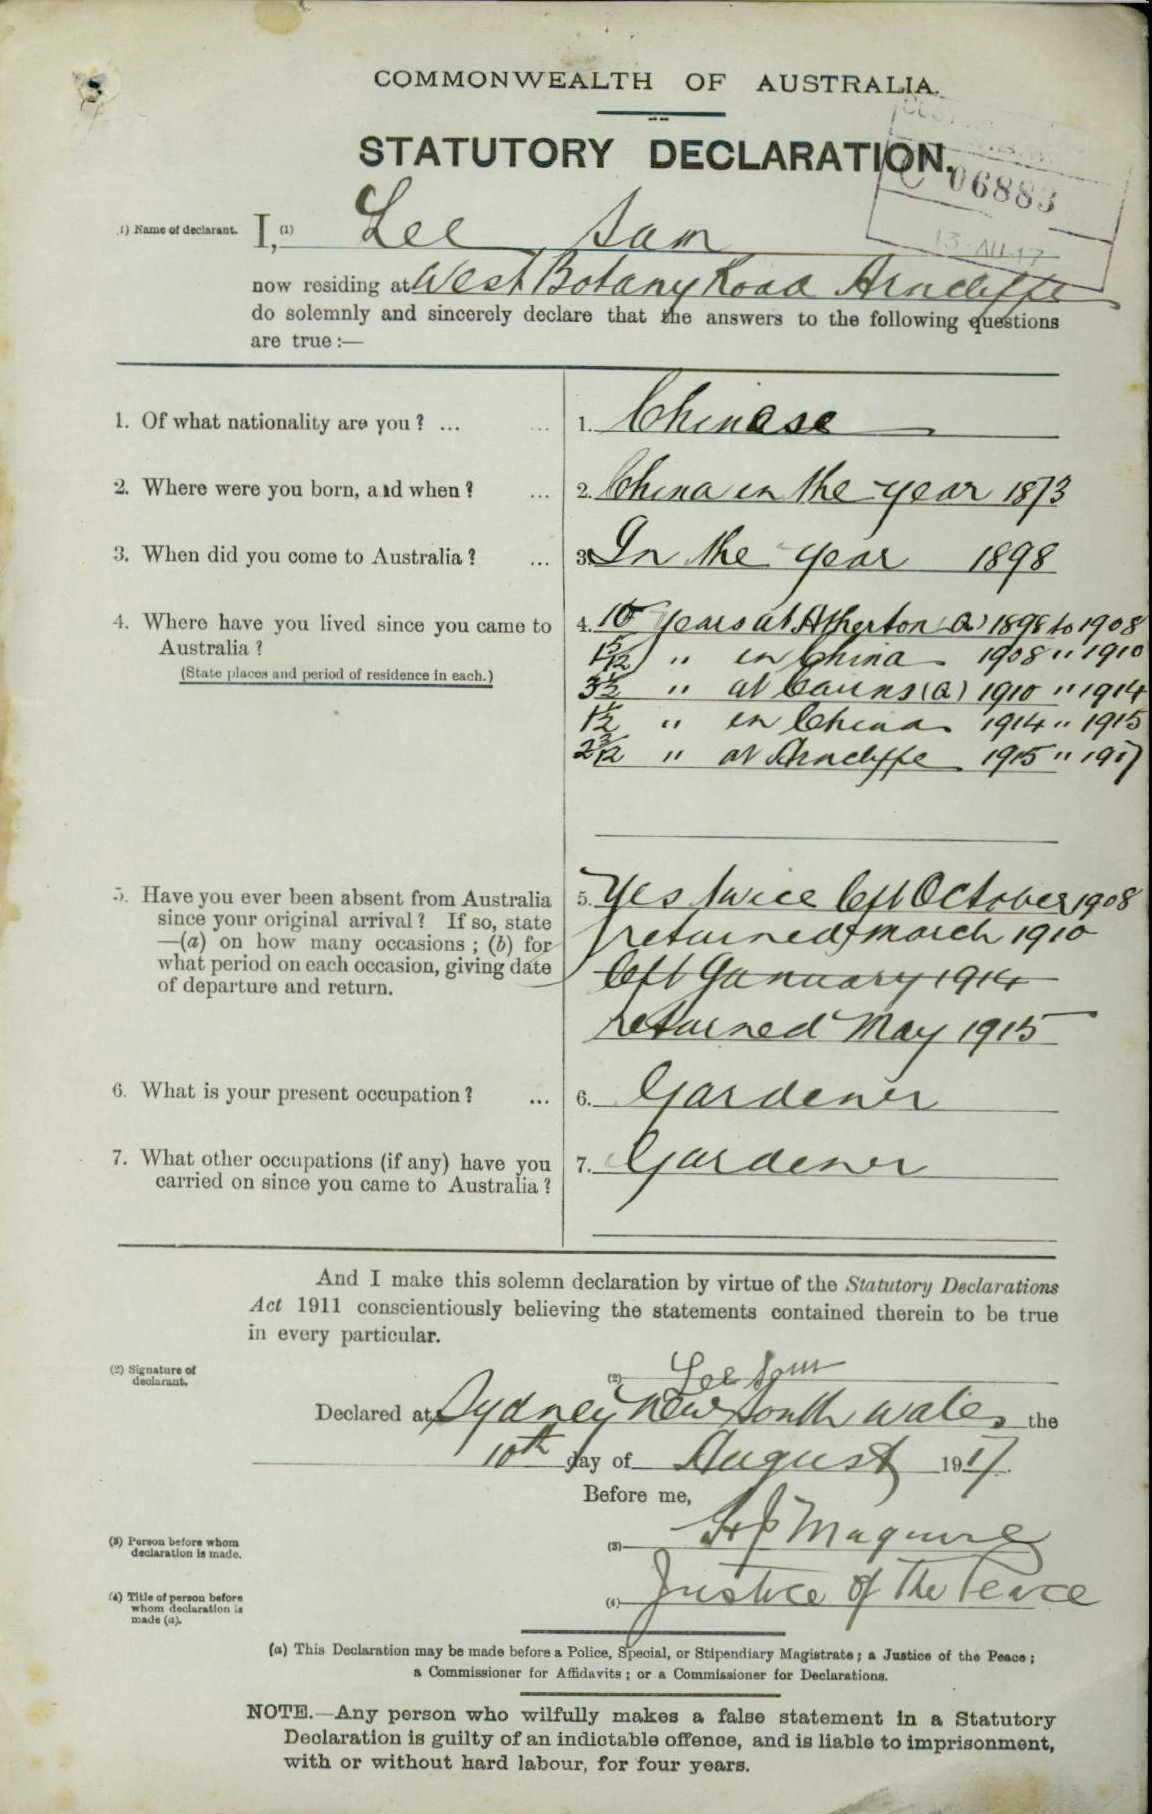 COMMONWEALTH OF AUSTRALIA.
STATUTORY DECLARATION.
C 06883
13 AU 17
(1) Name of declarant. I, (1) Lee Sam
now residing at West Botany Road Arncliffe
do solemnly and sincerely declare that the answers to the following questions
are true:—
1. Of what nationality are you? ... ... 1. Chinese
2. Where were you born, and when? ... 2. China in the year 1873
3. When did you come to Australia? ... 3. In the year 1898
4. Where have you lived since you came to Australia?
(State places and period of residence in each.)
4. 10 years at Atherton (Q) 1898 to 1908
1 5/12 " in China 1908 " 1910
" at Cairns (Q) 1910 " 1914
" in China 1914 " 1915
2 3/12 " at Arncliffe 1915 " 1917
5. Have you ever been absent from Australia
since your original arrival? If so, state
—(a) on how many occasions; (b) for
what period on each occasion, giving date
of departure and return.
5. Yes twice left October 1908
returned March 1910
left January 1914
returned May 1915
6. What is your present occupation? ... 6. Gardener
7. What other occupations (if any) have you
carried on since you came to Australia?
7. Gardener
And I make this solemn declaration by virtue of the Statutory Declarations
Act 1911 conscientiously believing the statements contained therein to be true
in every particular.
(2) Signature of
declarant.
(2) Lee Sam
Declared at Sydney New South Wales the
10th day of August 1917.
Before me,
(3) Person before whom
declaration is made.
(3) H J Maguire
(4) Title of person before
whom declaration is
made (a).
(4) Justice of the Peace
(a) This Declaration may be made before a Police, Special, or Stipendiary Magistrate; a Justice of the Peace;
a Commissioner for Affidavits; or a Commissioner for Declarations.
NOTE.—Any person who wilfully makes a false statement in a Statutory
Declaration is guilty of an indictable offence, and is liable to imprisonment,
with or without hard labour, for four years.